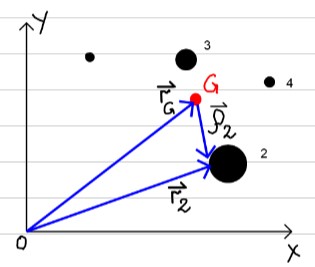 Y
3
G
4
r⃗_G
ρ⃗_2
2
r⃗_2
O
X